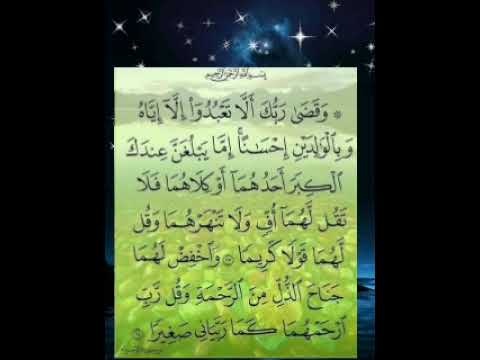 بسم الله الرحمن الرحيم
۞ وَقَضَىٰ رَبُّكَ أَلَّا تَعْبُدُوٓا۟ إِلَّآ إِيَّاهُ
وَبِٱلْوَٰلِدَيْنِ إِحْسَٰنًا ۚ إِمَّا يَبْلُغَنَّ عِندَكَ
ٱلْكِبَرَ أَحَدُهُمَآ أَوْ كِلَاهُمَا فَلَا
تَقُل لَّهُمَآ أُفٍّ وَلَا تَنْهَرْهُمَا وَقُل
لَّهُمَا قَوْلًا كَرِيمًا ۝ وَٱخْفِضْ لَهُمَا
جَنَاحَ ٱلذُّلِّ مِنَ ٱلرَّحْمَةِ وَقُل رَّبِّ
ٱرْحَمْهُمَا كَمَا رَبَّيَانِى صَغِيرًا ۝